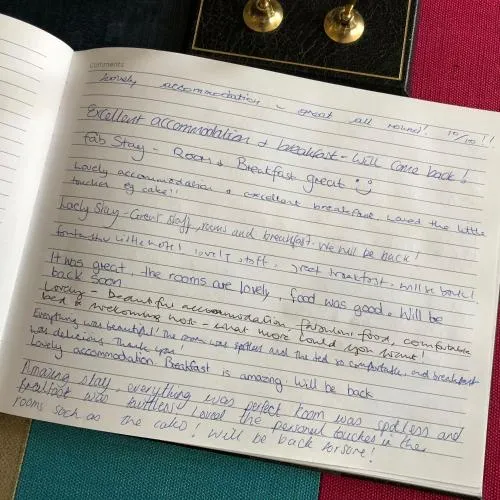 Comments
Lovely accommodation - great all round! 10/10!!
Excellent accommodation & breakfast - Will come back!
Fab Stay - Rooms & Breakfast great
Lovely accommodation & excellent breakfast. Loved the little
touches eg cake!!
Lovely Stay - Great staff, rooms and breakfast. We will be back!
Fantastic little hotel! lovely staff, great breakfast. Will be back!
It was great, the rooms are lovely, food was good. Will be
back soon
Lovely - Beautiful accommodation, fabulous food, comfortable
bed & welcoming host - what more could you want!
Everything was beautiful! The room was spotless and the bed so comfortable, and breakfast
was delicious. Thank you
Lovely accommodation. Breakfast is amazing. Will be back
Amazing stay, everything was perfect. Room was spotless and
breakfast was faultless! Loved the personal touches in the
rooms such as the cakes! Will be back for sure!